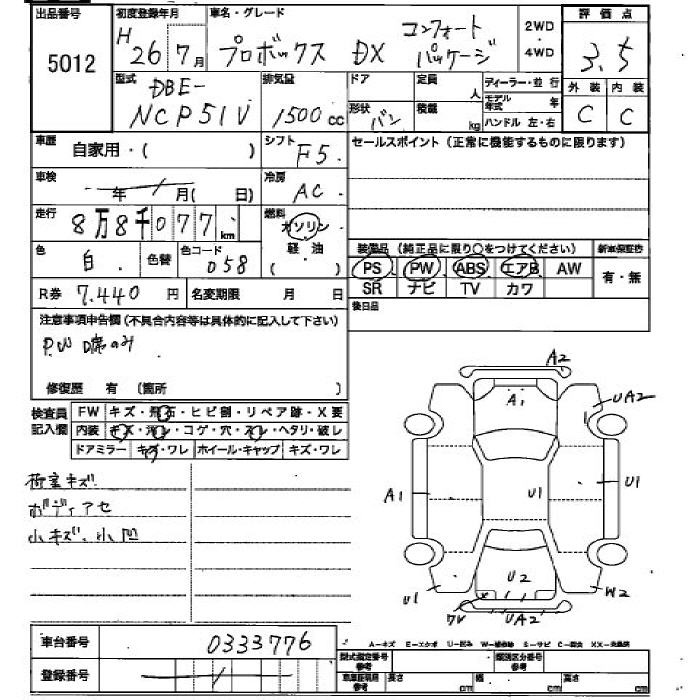 出品番号 初度登録年月 車名・グレード 2WD・4WD 評価点
5012 H 26 7月 プロボックス DX コンフォートパッケージ 3.5
型式 排気量 ドア 定員 人 ディーラー・並行 外装 内装
DBE-NCP51V 1500cc 形状 バン 積載 kg モデル年式 年 ハンドル 左・右 C C
車歴 自家用・( ) シフト F5. セールスポイント(正常に機能するものに限ります)
車検 年 月(日) 冷房 AC.
走行 8万8千077km 燃料 ガソリン 軽油 ( )
色 白. 色替 色コード 058 装備品(純正品に限り○をつけてください) 新車保証書
PS PW ABS エアB AW 有・無
R券 7,440円 名変期限 月 日 SR ナビ TV カワ
注意事項申告欄(不具合内容等は具体的に記入して下さい) 後日品
修復歴 有 (箇所 )
検査員記入欄 FW キズ・飛石・ヒビ割・リペア跡・X要
内装 キズ・汚レ・コゲ・穴・スレ・ヘタリ・破レ
ドアミラー キズ・ワレ ホイール・キャップ キズ・ワレ
荷室キズ
ボディアセ
小キズ、小凹
A2
A1 UA2
A1 U1 U1
U2
U1 UA2 W2
車台番号 0333776 A-キズ E-エクボ U-凹み S-サビ
登録番号 型式指定番号 参考 類別区分番号 参考
車庫証明用 参考 長さ cm 幅 cm 高さ cm